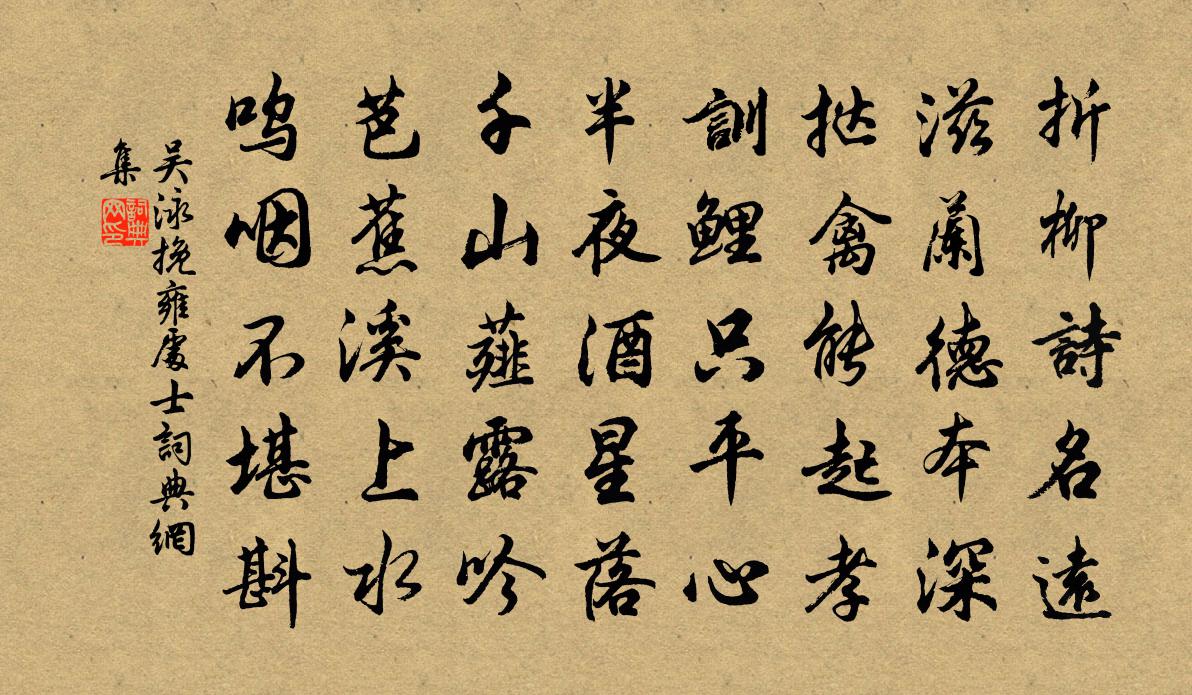 折柳詩名遠
滋蘭德本深
挞禽能起孝
訓鯉只平心
半夜酒星落
千山薤露吟
芭蕉溪上水
呜咽不堪斟
吴泳挽雍處士詞典網
集
詞典
网印